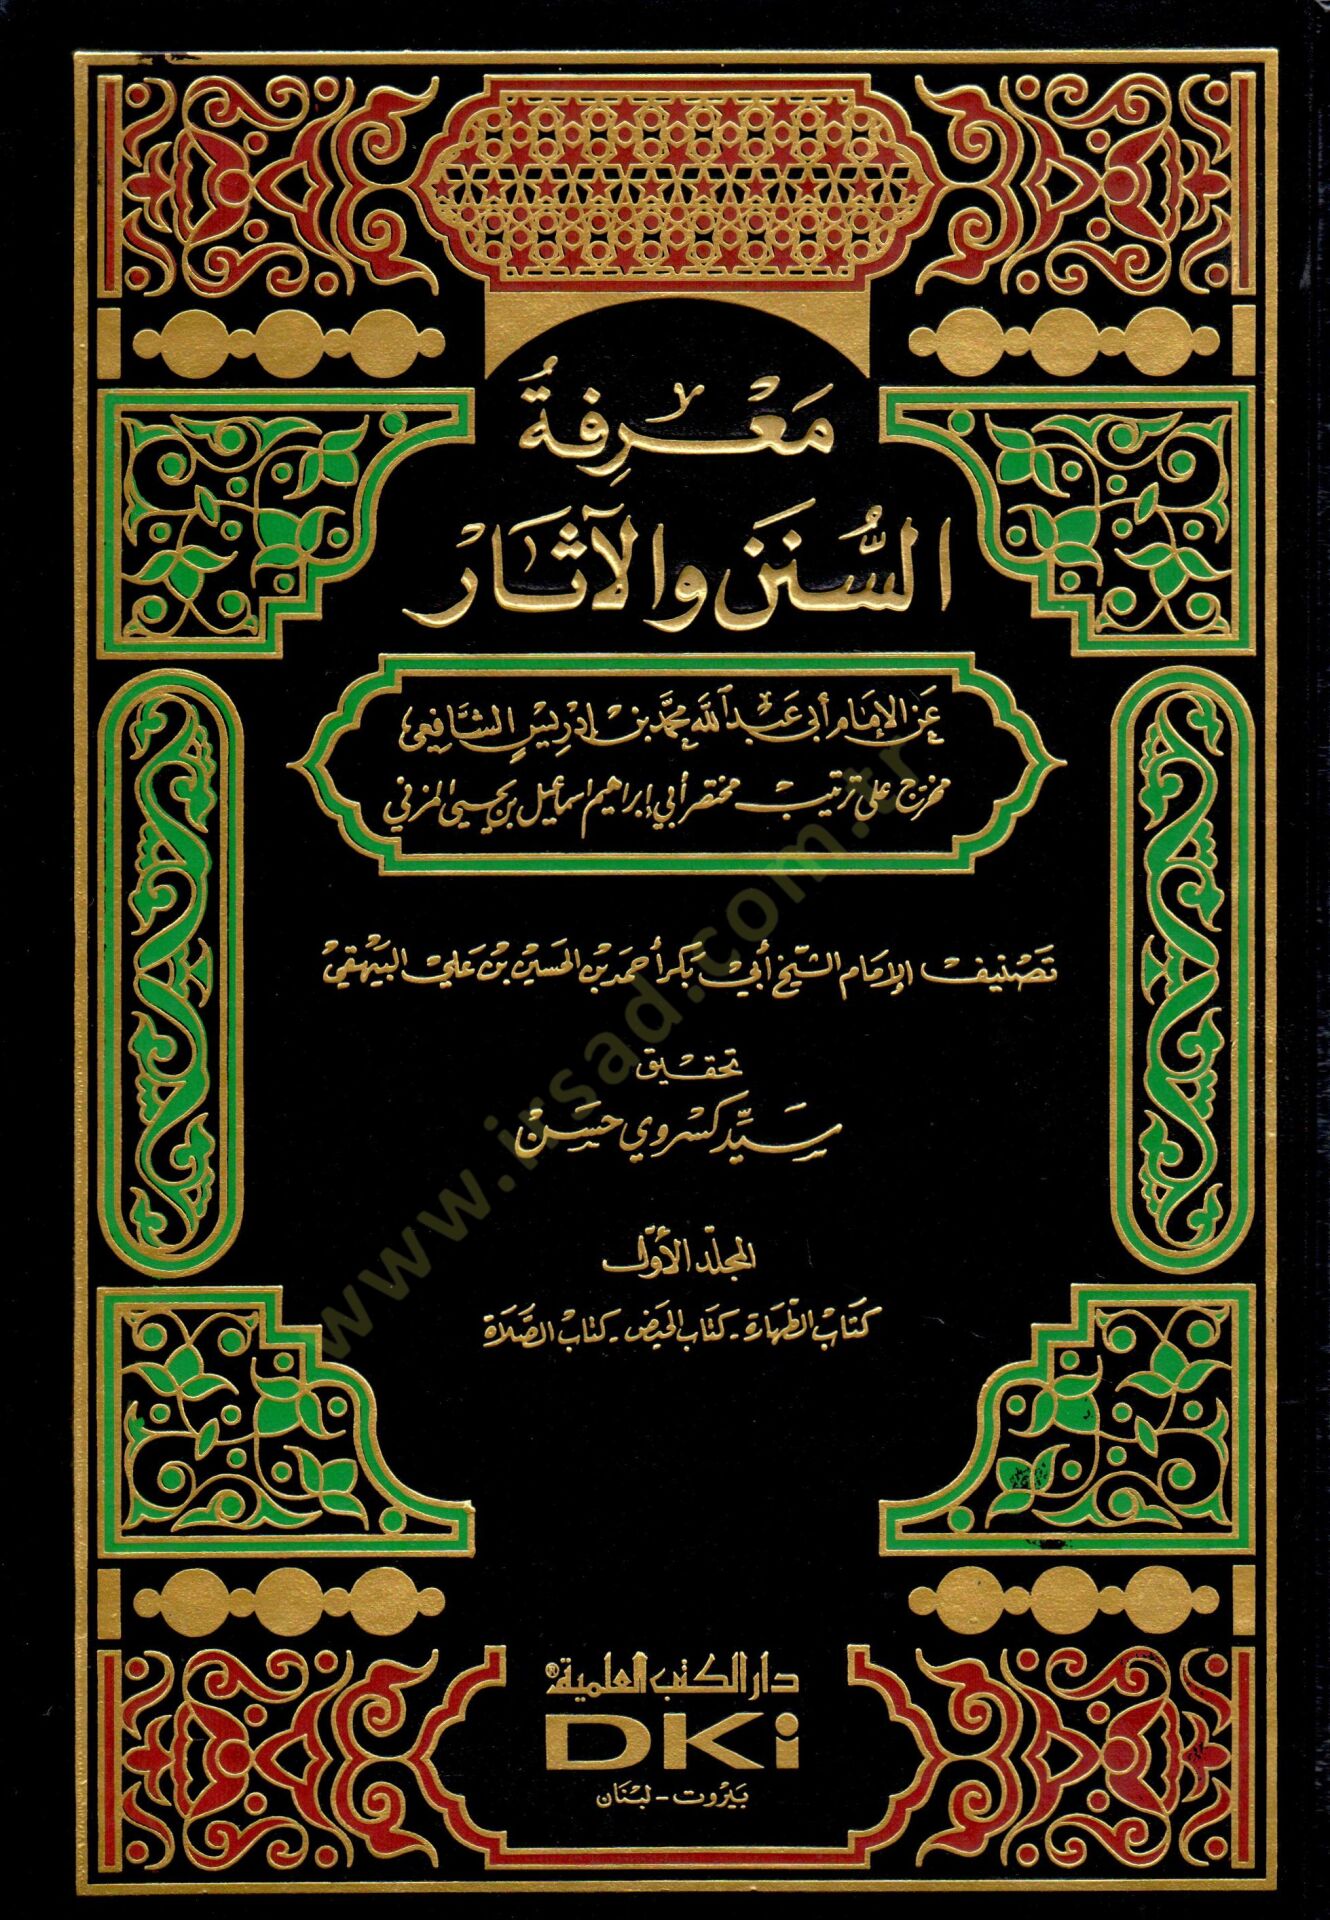 مَعْرِفَةُ
السُّنَنِ وَالآثَارِ
عَنِ الإِمَامِ أَبي عَبْدِ اللّه مُحَمَّد بن إدْرِيسِ الشَّافِعِيِّ
مُخَرَّج عَلى تَرتيب مُختصر أبي إبراهيم اسماعيل بن يحيى المزني
تَصْنِيف الإمَام الشَّيْخ أَبي بَكْر أحمَد بن الحُسَين بن عَلي البَيْهَقي
تحقِيق
سَيِّد كسْروي حَسَن
المجلّد الأوّل
كتَاب الطَّهَارة - كتَاب الحَيض - كتَاب الصَّلَاة
دار الكتب العلمية®
DKi
بَيْرُوت - لبْنَان
www.irsad.com.tr